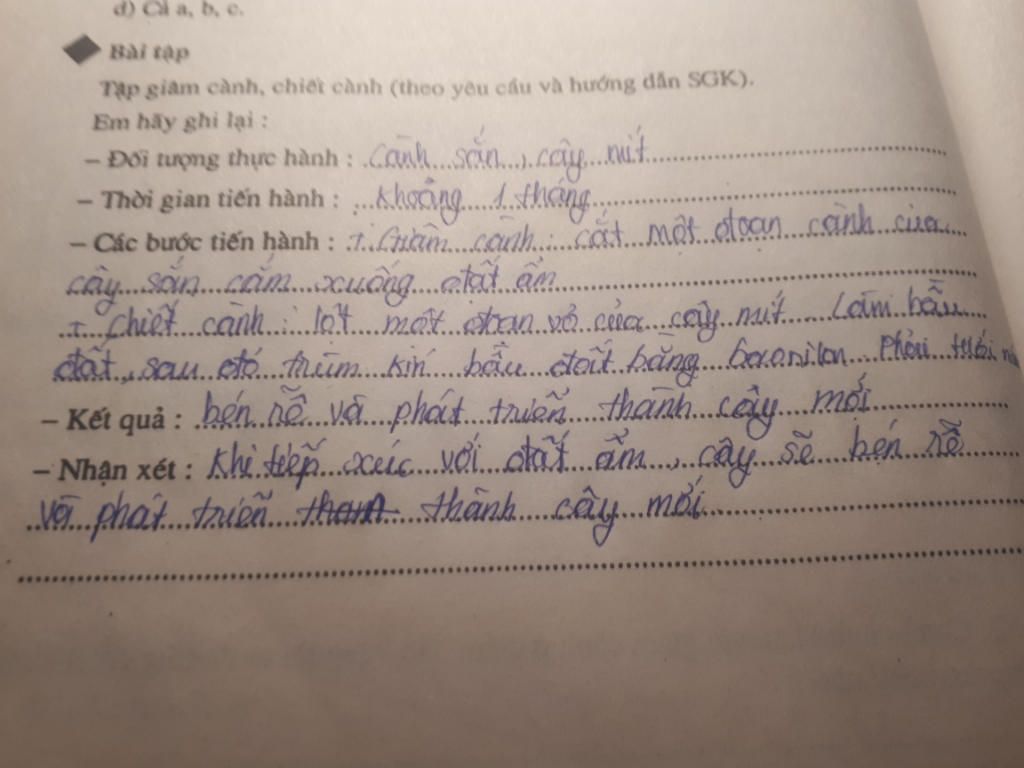 d) Cả a, b, c.
Bài tập
Tập giâm cành, chiết cành (theo yêu cầu và hướng dẫn SGK).
Em hãy ghi lại :
– Đối tượng thực hành : Cành sắn, cây mít
– Thời gian tiến hành : Khoảng 1 tháng
– Các bước tiến hành : + Giâm cành : cắt một đoạn cành của
cây sắn cắm xuống đất ẩm
+ chiết cành : lột một đoạn vỏ của cây mít. Làm bầu
đất, sau đó trùm kín bầu đất bằng baonilon. Phải tưới
– Kết quả : bén rễ và phát triển thành cây mới
– Nhận xét : Khi tiếp xúc với đất ẩm, cây sẽ bén rễ
và phát triển thành cây mới